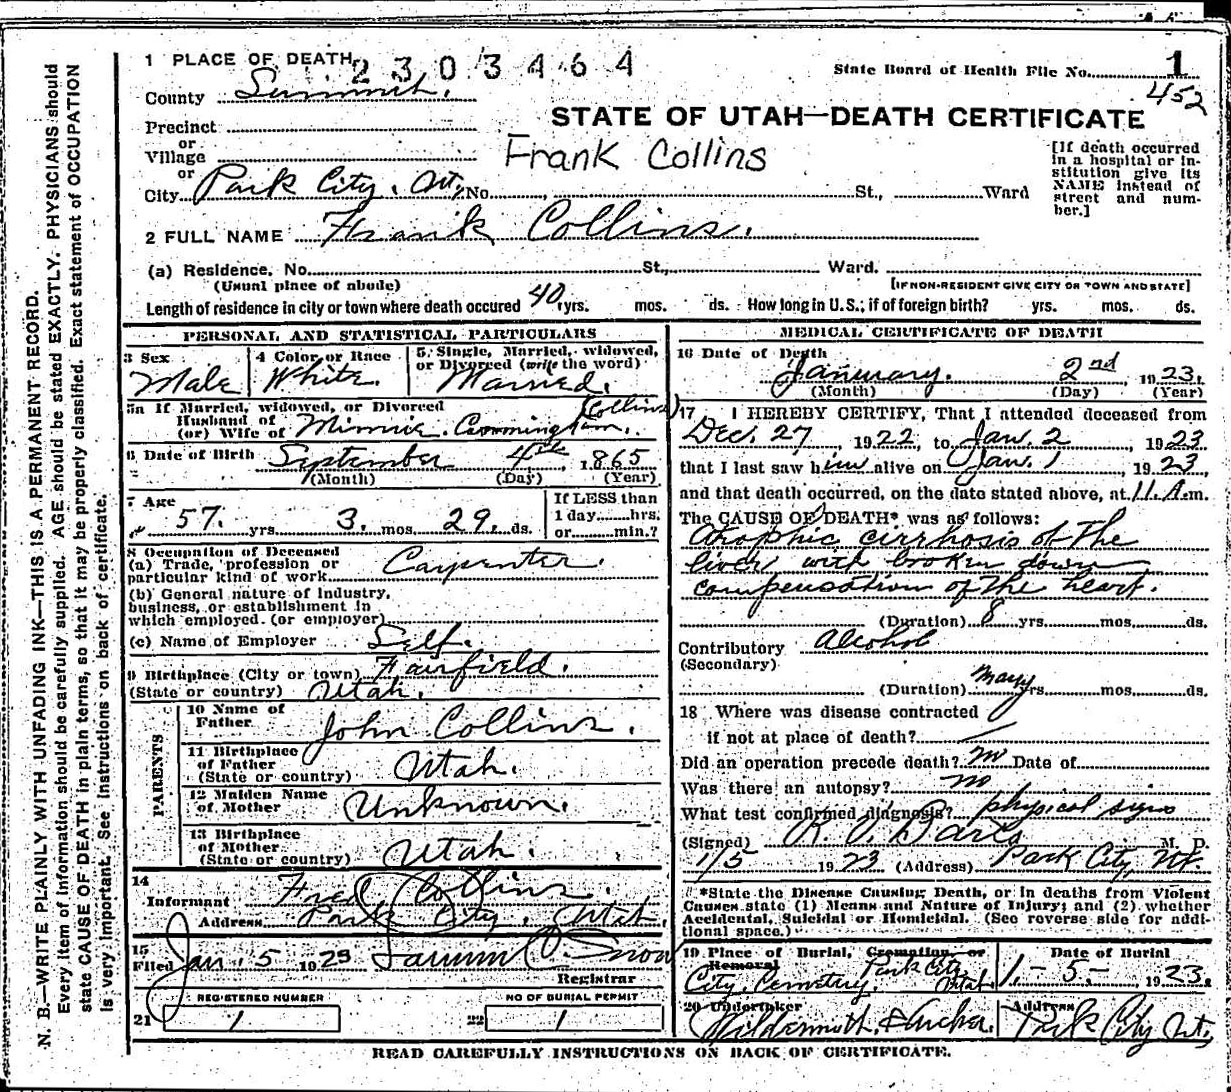 1 PLACE OF DEATH 2303464
State Board of Health File No. 1
452
County Summit.
STATE OF UTAH—DEATH CERTIFICATE
Precinct
or
Village
Frank Collins
[If death occurred in a hospital or institution give its NAME instead of street and number.]
or
City Park City, Ut, No. St., Ward
2 FULL NAME Frank Collins.
(a) Residence, No. St., Ward.
(Usual place of abode) [IF NON-RESIDENT GIVE CITY OR TOWN AND STATE]
Length of residence in city or town where death occured 40 yrs. mos. ds. How long in U.S., if of foreign birth? yrs. mos. ds.
PERSONAL AND STATISTICAL PARTICULARS
3 Sex 4 Color or Race 5. Single, Married, widowed,
or Divorced (write the word)
Male White. Married.
5a If Married, widowed, or Divorced (Collins)
Husband of
(or) Wife of Minnie Cunningham.
6 Date of Birth September 4th 1865
(Month) (Day) (Year)
7 Age If LESS than
57. yrs. 3. mos. 29. ds. 1 day hrs.
or min.?
8 Occupation of Deceased
(a) Trade, profession or
particular kind of work Carpenter.
(b) General nature of Industry,
business, or establishment in
which employed. (or employer)
(c) Name of Employer Self.
9 Birthplace (City or town) Fairfield.
(State or country) Utah.
PARENTS
10 Name of
Father John Collins.
11 Birthplace
of Father
(State or country) Utah.
12 Maiden Name
of Mother Unknown.
13 Birthplace
of Mother
(State or country) Utah.
14
Informant Fred Collins.
Address Park City, Utah.
15
Filed Jan. 5 1923 Snow
Registrar
REGISTERED NUMBER NO OF BURIAL PERMIT
21 1 22 1
MEDICAL CERTIFICATE OF DEATH
16 Date of Death
January. 2nd 1923.
(Month) (Day) (Year)
17 I HEREBY CERTIFY, That I attended deceased from
Dec. 27 1922, to Jan. 2 1923
that I last saw him alive on Jan. 1 1923
and that death occurred, on the date stated above, at 11. A.m.
The CAUSE OF DEATH* was as follows:
Atrophic cirrhosis of the
liver with broken down
compensation of the heart.
(Duration) 8 yrs. mos. ds.
Contributory Alcohol
(Secondary)
(Duration) many yrs. mos. ds.
18 Where was disease contracted
if not at place of death?
Did an operation precede death? no Date of
Was there an autopsy? no
What test confirmed diagnosis? physical signs
(Signed) M. D.
1/5 1923 (Address) Park City, Ut.
*State the Disease Causing Death, or in deaths from Violent
Causes state (1) Means and Nature of Injury; and (2) whether
Accidental, Suicidal or Homicidal. (See reverse side for additional space.)
19 Place of Burial, Cremation, or Removal Date of Burial
City Cemetery, Park City Utah. 1-5- 1923.
20 Undertaker Address
Park City Ut.
READ CAREFULLY INSTRUCTIONS ON BACK OF CERTIFICATE.
N. B.—WRITE PLAINLY WITH UNFADING INK—THIS IS A PERMANENT RECORD.
Every item of information should be carefully supplied. AGE should be stated EXACTLY. PHYSICIANS should
state CAUSE OF DEATH in plain terms, so that it may be properly classified. Exact statement of OCCUPATION
is very important. See instructions on back of certificate.